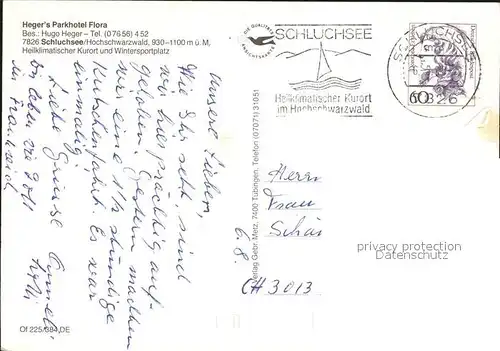 Heger's Parkhotel Flora
Bes.: Hugo Heger - Tel. (07656) 452
7826 Schluchsee/Hochschwarzwald, 930–1100 m ü. M,
Heilklimatischer Kurort und Wintersportplatz
Unsere Lieben,
Wie Ihr seht, sind
wir hier prächtig auf-
gehoben. Gestern machten
wir eine 1½ stündige
Kutschenfahrt. Es war
einmalig!
Liebe Grüsse
Of 225/384 DE
Verlag Gebr. Metz, 7400 Tübingen, Telefon (07071) 31051
SCHLUCHSEE
Heilklimatischer Kurort
im Hochschwarzwald
SCHLUCHSEE
7826
60
Herrn
Frau
Schär
6.8.
CH 3013
privacy protection
Datenschutz